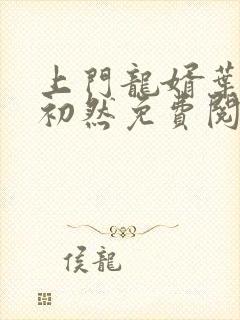 上門龍婿葉
初然免費閱
侯龍